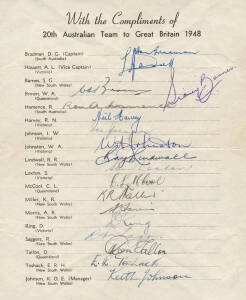 With the Compliments of
20th Australian Team to Great Britain 1948
Bradman, D. G. (Captain)
(South Australia)
Hassett, A. L. (Vice Captain)
(Victoria)
Barnes, S. G.
(New South Wales)
Brown, W. A.
(Queensland)
Hamence, R.
(South Australia)
Harvey, R. N. Neil Harvey
(Victoria)
Johnson, I. W.
(Victoria)
Johnston, W. A.
(Victoria)
Lindwall, R. R.
(New South Wales)
Loxton, S.
(Victoria)
McCool, C. L.
(Queensland)
Miller, K. R.
(New South Wales)
Morris, A. R.
(New South Wales)
Ring, D.
(Victoria)
Saggers, R.
(New South Wales)
Tallon, D.
(Queensland)
Toshack, E. R. H.
(New South Wales)
Johnson, K. O. E. (Manager) Keith Johnson
(New South Wales)